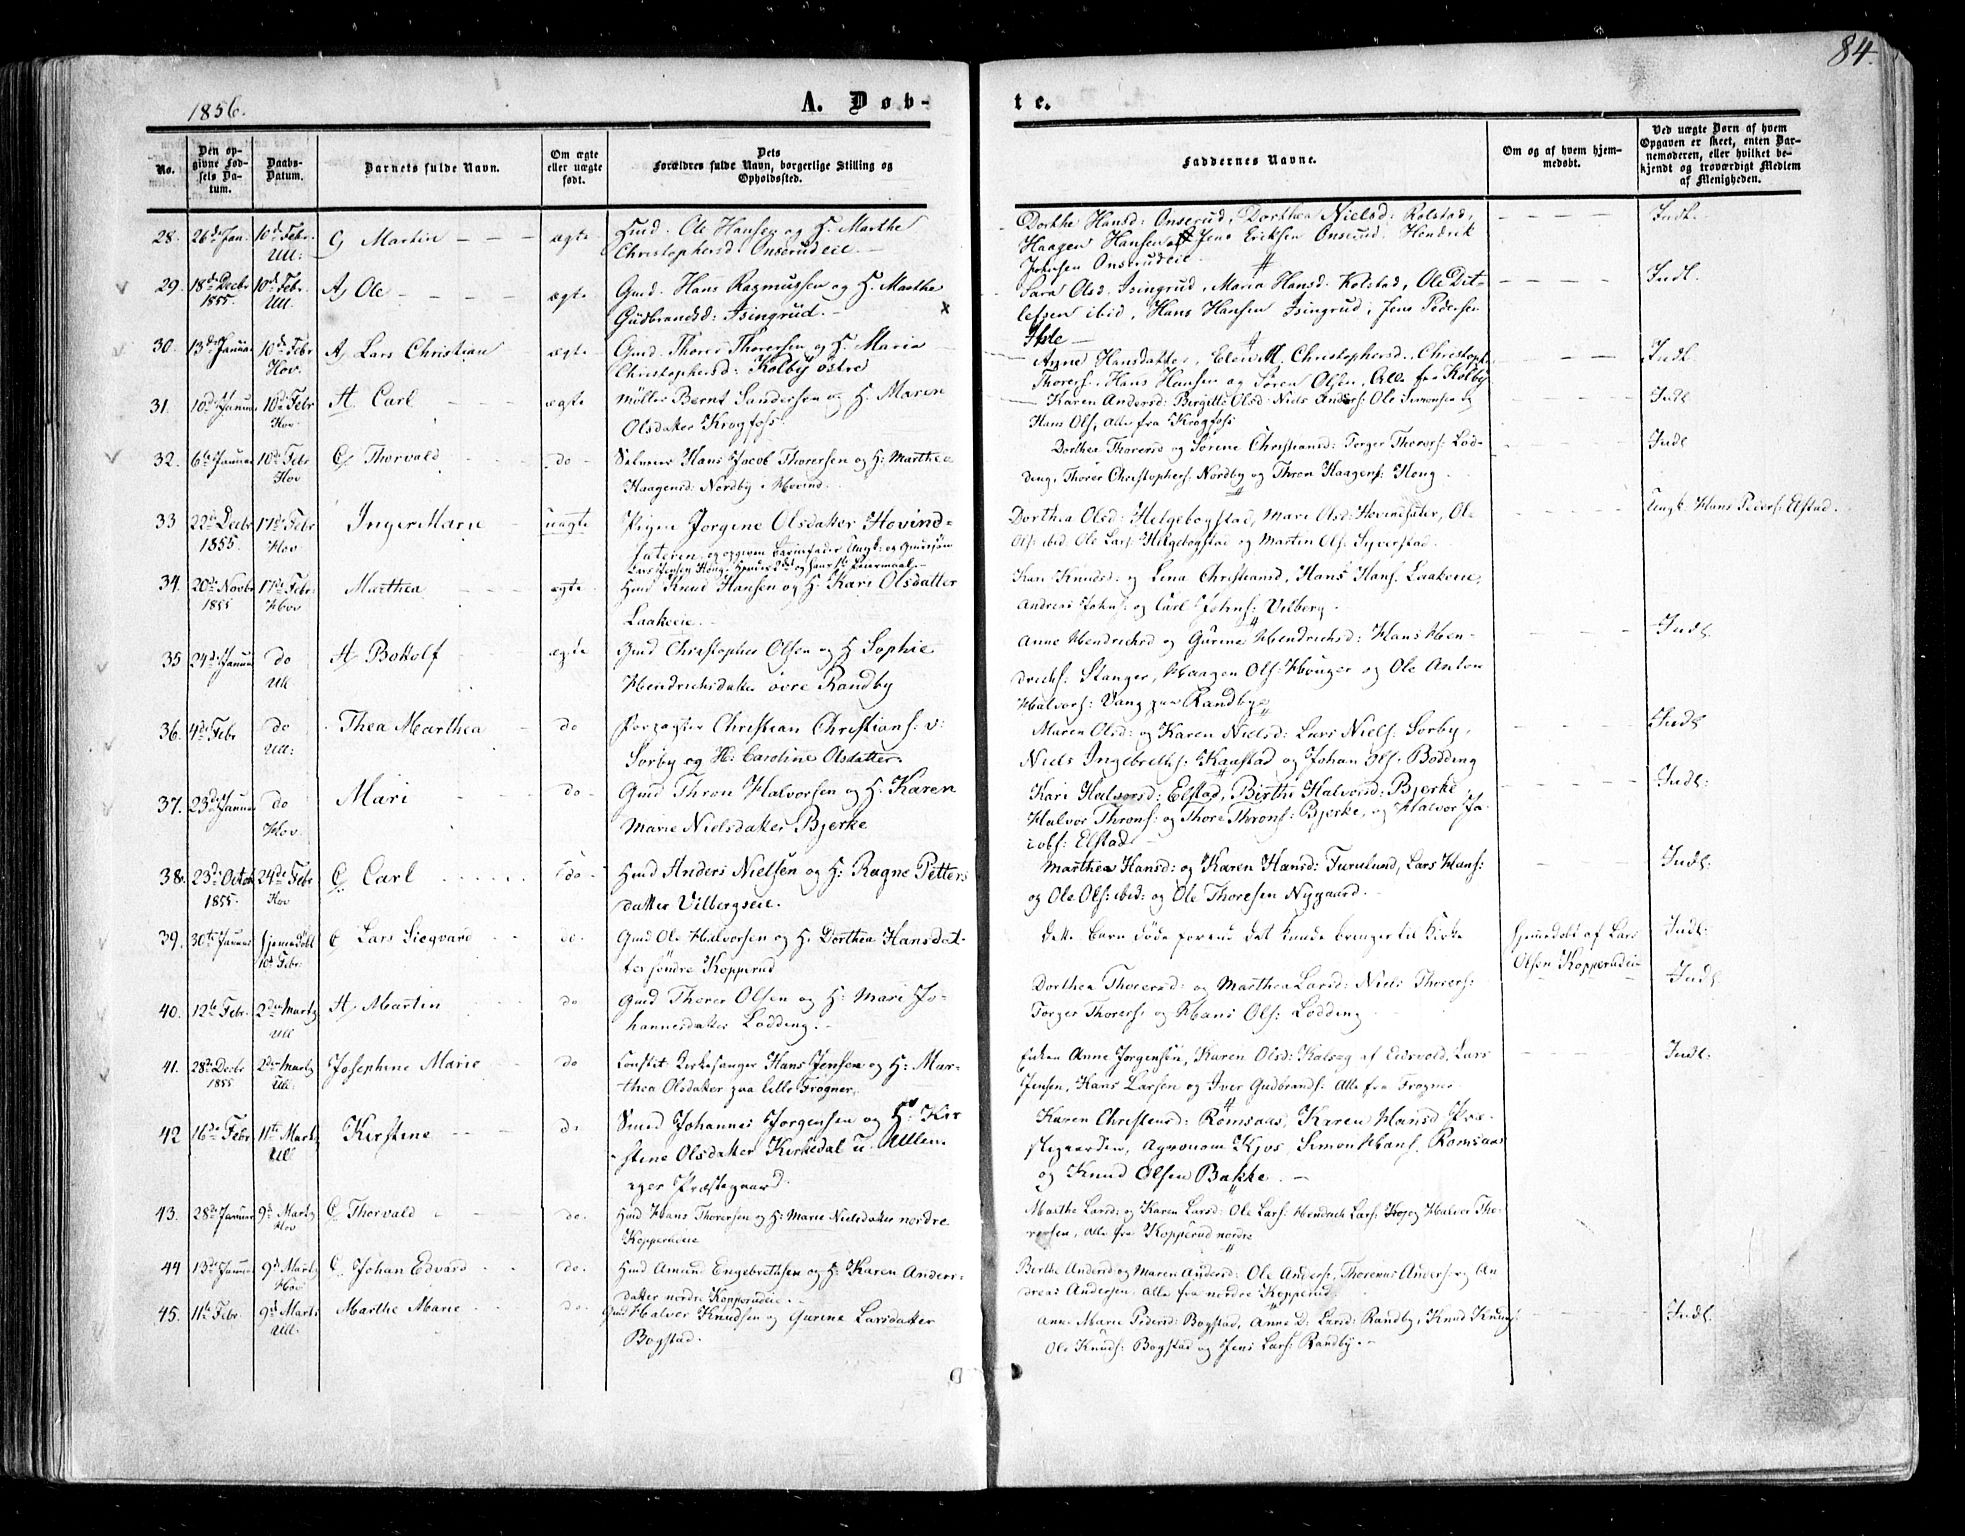 84.
1856.
A. Døb-
te.
No.
Den opgivne Fødsels Datum.
Daabs-Datum.
Barnets fulde Navn.
Om ægte eller uægte født.
Dets Forældres fulde Navn, borgerlige Stilling og Opholdssted.
Faddernes Navne.
Om og af hvem hjemmedøbt.
Ved uægte Børn af hvem Opgaven er skeet, enten Barnemoderen, eller hvilket bekjendt og troværdigt Medlem af Menigheden.
28. 26de Jan. 10de Febr. Ull: Martin ægte
Hmd. Ole Hansen og H. Marthe
Christophersd: Onserudeie
Dorthe Hansd: Onserud, Dorthea Nielsd: Kolstad,
Haagen Hansen Jens Ericksen Onserud. Hendrik
Onserudeie
Indl.
29. 18de Decbr 1855. 10de Febr. Ull. A, Ole ægte
Gmd. Hans Rasmussen og H. Marthe
Gudbrandsd: Isingrud.
Sara Olsd. Isingrud, Maria Hansd. Kolstad, Ole Dit-
lefsen ibid, Hans Hansen Isingrud, Jens Pedersen
Indl.
30. 13de Januar 10de Febr Hov. A, Lars Christian ægte
Gmd. Thorer Thorersen og H. Maria
Christophersd: Kolby østre
Anne Hansdatter, Christophersd. Christoph.
Thorers. Hans Hansen og Søren Olsen, Alle fra Kolby
Indl.
31. 10de Januar 10de Febr Hov A Carl ægte
Møller Bernt Sandersen og H. Maren
Olsdatter Krogfoss
Karen Andersd: Birgitte Olsd: Niels Anders: Ole Simonsen og
Hans Ols, alle fra Krogfoss
Indl
32. 6te Januar 10de Febr Hov C Thorvald do
Hans Jacob Thorersen og H: Marthea
Haagensd: Nordby i Hovind
Dorthea Thorersd og Sørene Christiansd: Torger Thorers: Lød-
ding, Thorer Christophers. Nordby og Thron Haagens: Hong
Indl
33 22de Decbr 1855. 17de Febr Hov Inger Marie uægte
Pigen Jorgine Olsdatter Hovind-
sæteren, og opgiven Barnefader Ungk: og Gaardsøn
Lars Jensen Hong
Dorthea Olsd: Helgebogstad, Mari Olsd: Hovindsæter, Ol-
Ols: ibid Ole Lars: Helgebogstad og Martin Ols. Syverstad
Ungk. Hans Peders: Elstad.
34. 20de Novbr 1855 17de Febr: Hov Marthea ægte
Hmd Knud Hansen og H. Kari Olsdatter
Laakeeie.
Kari Knudsd. og Lina Christiansd, Hans Hans. Laakeeie,
Andreas Johns: og Carl Johns: Vilberg.
35 24de Januar do Ull A Bottolf ægte
Gmd Christopher Olsen og H Sophie
Hendrichsdatter øvre Randby
Anne Hendrichsd og Gurine Hendrichsd: Hans Hen-
drichs: Stanger, Haagen Ols: Honger og Ole Anton
Halvors: Vang paa Randby
Indl.
36. 4de Febr do Ull: Thea Marthea do
Forpagter Christian Christians: v:
Sørby og H: Caroline Olsdatter
Maren Olsd: og Karen Nielsd: Lars Niels: Sørby,
Niels Ingebreths: Kaastad og Johan Ols. Bødding
Indl
37. 23de Januar do Hov Mari do
Gmd Thron Halvorsen og H. Karen
Marie Nielsdatter Bjerke
Kari Halvorsd: Elstad, Birthe Halvorsd: Bjerke,
Halvor Throns: og Thore Throns: Bjerke, og Halvor Ja-
cobs: Elstad
Indl:
38. 23de Octob 1855. 24de Febr Hov C Carl do
Hmd Anders Nielsen og H: Ragne Petters
datter Vilbergseie.
Marthea Hansd: og Karen Hansd: Furulund, Lars Hans:
og Ole Ols: ibid: og Ole Thoresen Nygaard.
Indl:
39. 30te Januar hjemmedøbt 10de Febr: C Lars Siegvard do.
Gmd Ole Halvorsen og H. Dorthea Hansdat-
ter søndre Kopperud
Dette Barn døde førend det kunde bringes til Kirke
hjemmedøbt af Lars
Olsen Kopperudeie
Indl:
40. 12te Febr. 2den Marts Ull A Martin do
Gmd Thorer Olsen og H: Mari Jo-
hannesdatter Lødding.
Dorthea Thorersd: og Marthea Larsd: Niels Thorers:
Torger Thorers: og Hans Ols: Lødding
Indl
41. 28de Decbr 1855 2den Marts Ull. Josephine Marie do
Constit Kirkesanger Hans Jensen og H: Mar-
thea Olsdatter paa lille Frogner.
Enken Anne Jorgensen, Karen Olsd: af Eidsvold, Lars
Jensen, Hans Larsen og Iver Gudbrands: alle fra Frogner
Indl:
42 16de Febr 11te Marts Ull Kirstine do
Smed Johannes Jorgensen og H. Kir
stine Olsdatter Kirkedal u. Ullens
ager Præstegaard.
Karen Christensd: Romsaas, Karen Hansd Præ-
stegaarden, Agronom Kjos, Simon Hans. Romsaas
og Knud Olsen Bakke.
43. 28de Januar 9de Marts Hov C Thorvald do.
Hmd Hans Thorersen og H. Marie Nielsdatter nordre
Kopperudeie
Marthe Larsd: og Karen Larsd: Ole Lars: Hendrik Lars: og Halvor Tho-
rersen, alle fra Kopperud nordre
44 13de Januar 9de Marts Hov C Johan Edvard do.
Hmd Amund Engebrethsen og H: Karen Anders-
datter nordre Kopperudeie
Birthe Andersd og Maren Andersd: Ole Anders:, Thorenus Anders: og An-
dreas Andersen, alle fra nordre Kopperud
45. 11te Febr. 9de Marts Ull. Marthe Marie do.
Gmd Halvor Knudsen og Gurine Larsdatter
Bogstad.
Anne Marie Pedersd: Bogstad, Anne D: Larsd: Randby, Knud Knuds:
Ole Knuds: Bogstad og Jens Lars: Randby.
Indl: